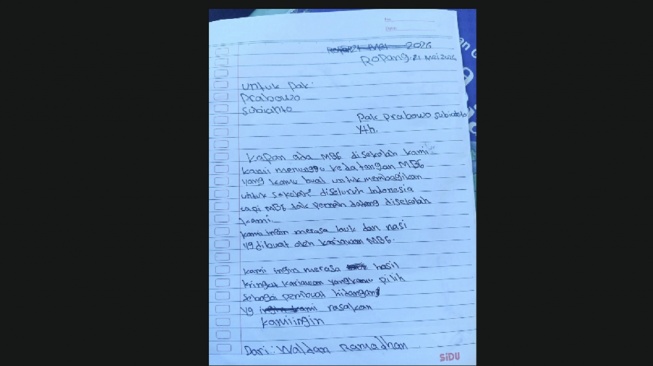 No:
Date:
Ropang 21 Mei 2026
untuk pak
Prabowo
Subianto
Pak Prabowo Subianto
Yth.
Kapan ada MBG disekolah kami
kami menunggu kedatangan MBG
yang kamu buat untuk membagikan
untuk sekolah² diseluruh Indonesia
tapi MBG tak pernah datang disekolah
kami
kami ingin merasa lauk dan nasi
yg dibuat oleh karyawan MBG.
kami ingin merasa hasil
kringat karyawan yang kamu pilih
sebagai pembuat hidangan
yg rasakan
kami ingin
Dari: Waldan Ramadhan
SIDU